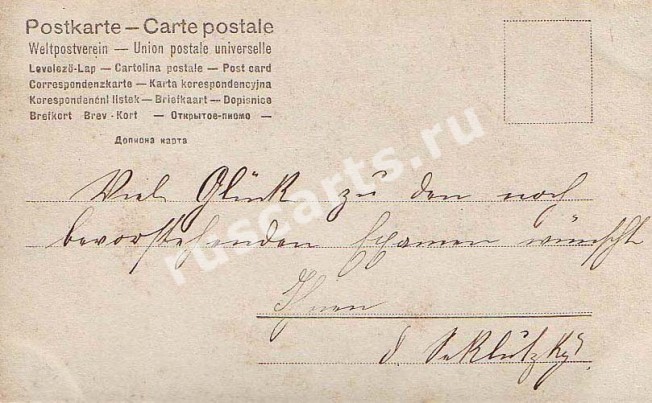 Postkarte – Carte postale
Weltpostverein — Union postale universelle
Levelező-Lap — Cartolina postale — Post card
Correspondenzkarte — Karta korespondencyjna
Korespondenční lístek — Briefkaart — Dopisnice
Brefkort Brev-Kort — Открытое-письмо —
Дописна карта
Viel Glück zu den noch
bevorstehenden Examen wünscht
Ihnen
ruscarts.ru